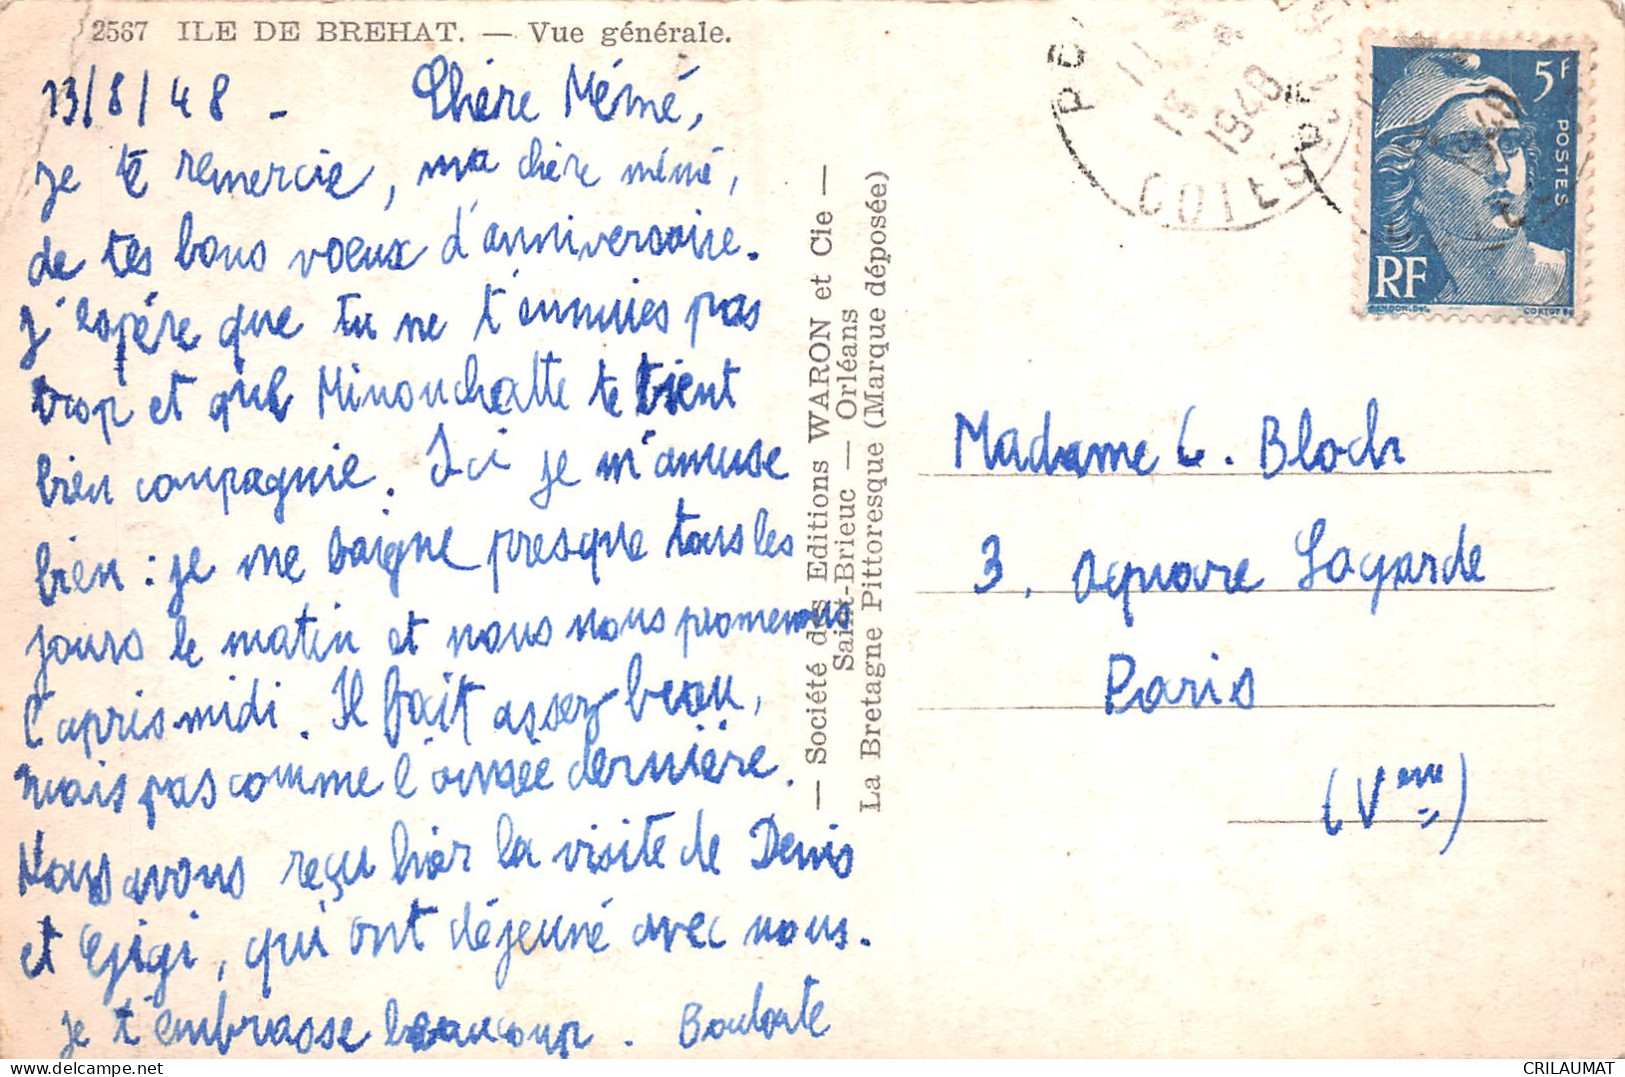 2567 ILE DE BREHAT. — Vue générale.
13/8/48 - Chère Mémé,
je te remercie, ma chère mémé,
de tes bons voeux d'anniversaire.
J'espère que tu ne t'ennuies pas
trop et que Minouchatte te tient
bien compagnie. Ici je m'amuse
bien : je me baigne presque tous les
jours le matin et nous nous promenons
l'après midi. Il fait assez beau,
mais pas comme l'année dernière.
Nous avons reçu hier la visite de Denis
et Gigi, qui ont déjeuné avec nous.
je t'embrasse beaucoup.
— Société des Editions WARON et Cie —
Saint-Brieuc — Orléans
La Bretagne Pittoresque (Marque déposée)
1948
5F
POSTES
RF
Madame L. Bloch
3, square Lagarde
Paris
(Vème)
CRILAUMAT